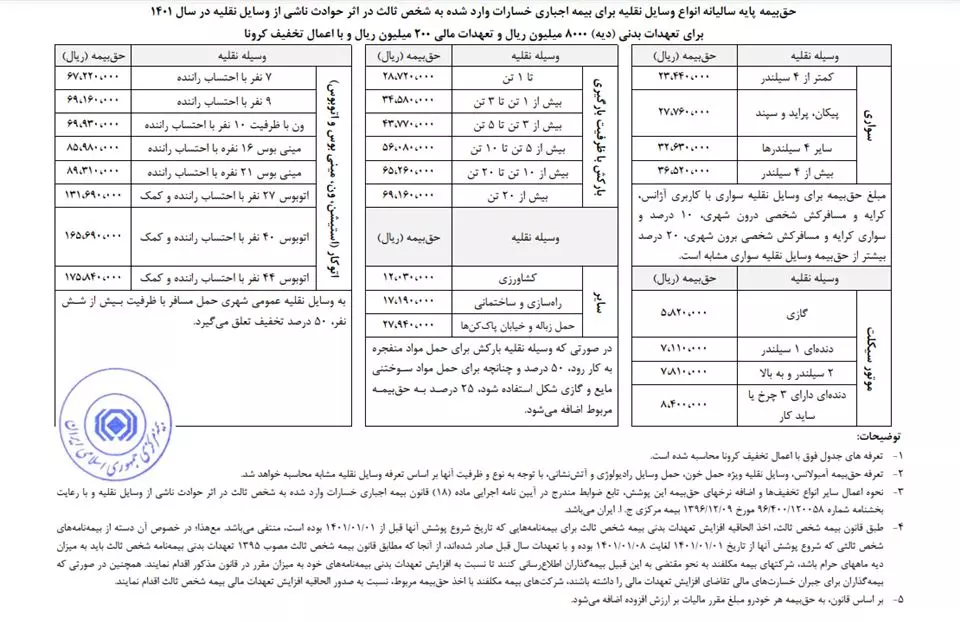 حق‌بیمه پایه سالیانه انواع وسایل نقلیه برای بیمه اجباری خسارات وارد شده به شخص ثالث در اثر حوادث ناشی از وسایل نقلیه در سال ۱۴۰۱
برای تعهدات بدنی (دیه) ۸۰۰۰ میلیون ریال و تعهدات مالی ۲۰۰ میلیون ریال و با اعمال تخفیف کرونا
وسیله نقلیه حق‌بیمه (ریال)
سواری
کمتر از ۴ سیلندر ۲۳،۴۴۰،۰۰۰
پیکان، پراید و سپند ۲۷،۷۶۰،۰۰۰
سایر ۴ سیلندرها ۳۲،۶۳۰،۰۰۰
بیش از ۴ سیلندر ۳۶،۵۲۰،۰۰۰
مبلغ حق‌بیمه برای وسایل نقلیه سواری با کاربری آژانس،
کرایه و مسافرکش شخصی درون شهری، ۱۰ درصد و
سواری کرایه و مسافرکش شخصی برون شهری، ۲۰ درصد
بیشتر از حق‌بیمه وسایل نقلیه سواری مشابه است.
وسیله نقلیه حق‌بیمه (ریال)
موتور سیکلت
گازی ۵،۸۲۰،۰۰۰
دنده‌ای ۱ سیلندر ۷،۱۱۰،۰۰۰
۲ سیلندر و به بالا ۷،۸۱۰،۰۰۰
دنده‌ای دارای ۳ چرخ یا
ساید کار ۸،۴۰۰،۰۰۰
وسیله نقلیه حق‌بیمه (ریال)
بارکش با ظرفیت بارگیری
تا ۱ تن ۲۸،۷۲۰،۰۰۰
بیش از ۱ تن تا ۳ تن ۳۴،۵۸۰،۰۰۰
بیش از ۳ تن تا ۵ تن ۴۳،۷۷۰،۰۰۰
بیش از ۵ تن تا ۱۰ تن ۵۶،۰۸۰،۰۰۰
بیش از ۱۰ تن تا ۲۰ تن ۶۵،۲۶۰،۰۰۰
بیش از ۲۰ تن ۶۹،۱۶۰،۰۰۰
وسیله نقلیه حق‌بیمه (ریال)
سایر
کشاورزی ۱۲،۰۳۰،۰۰۰
راه‌سازی و ساختمانی ۱۷،۱۹۰،۰۰۰
حمل زباله و خیابان پاک‌کن‌ها ۲۷،۹۴۰،۰۰۰
در صورتی که وسیله نقلیه بارکش برای حمل مواد منفجره
به کار رود، ۵۰ درصد و چنانچه برای حمل مواد سوختنی
مایع و گازی شکل استفاده شود، ۲۵ درصد به حق‌بیمه
مربوط اضافه می‌شود.
وسیله نقلیه حق‌بیمه (ریال)
اتوکار (استیشن، ون، مینی بوس و اتوبوس)
۷ نفر با احتساب راننده ۶۷،۲۲۰،۰۰۰
۹ نفر با احتساب راننده ۶۹،۱۶۰،۰۰۰
ون با ظرفیت ۱۰ نفر با احتساب راننده ۶۹،۹۳۰،۰۰۰
مینی بوس ۱۶ نفره با احتساب راننده ۸۵،۹۸۰،۰۰۰
مینی بوس ۲۱ نفره با احتساب راننده ۸۹،۳۱۰،۰۰۰
اتوبوس ۲۷ نفر با احتساب راننده و کمک ۱۳۱،۶۹۰،۰۰۰
اتوبوس ۴۰ نفر با احتساب راننده و کمک ۱۶۵،۶۹۰،۰۰۰
اتوبوس ۴۴ نفر با احتساب راننده و کمک ۱۷۵،۸۴۰،۰۰۰
به وسایل نقلیه عمومی شهری حمل مسافر با ظرفیت بیش از شش
نفر، ۵۰ درصد تخفیف تعلق می‌گیرد.
بیمه مرکزی جمهوری اسلامی ایران
توضیحات:
۱- تعرفه های جدول فوق با اعمال تخفیف کرونا محاسبه شده است.
۲- تعرفه حق‌بیمه آمبولانس، وسایل نقلیه ویژه حمل خون، حمل وسایل رادیولوژی و آتش‌نشانی، با توجه به نوع و ظرفیت آنها بر اساس تعرفه وسایل نقلیه مشابه محاسبه خواهد شد.
۳- نحوه اعمال سایر انواع تخفیف‌ها و اضافه نرخهای حق‌بیمه این پوشش، تابع ضوابط مندرج در آیین نامه اجرایی ماده (۱۸) قانون بیمه اجباری خسارات وارد شده به شخص ثالث در اثر حوادث ناشی از وسایل نقلیه و با رعایت
بخشنامه شماره ۹۶/۴۰۰/۱۲۰۰۵۸ مورخ ۱۳۹۶/۱۲/۰۹ بیمه مرکزی ج. ا. ایران می‌باشد.
۴- طبق قانون بیمه شخص ثالث، اخذ الحاقیه افزایش تعهدات بدنی بیمه شخص ثالث برای بیمه‌نامه‌هایی که تاریخ شروع پوشش آنها قبل از ۱۴۰۱/۰۱/۰۱ بوده است، منتفی می‌باشد. مع‌هذا؛ در خصوص آن دسته از بیمه‌نامه‌های
شخص ثالثی که شروع پوشش آنها از تاریخ ۱۴۰۱/۰۱/۰۱ لغایت ۱۴۰۱/۰۱/۰۸ بوده و با تعهدات سال قبل صادر شده‌اند، از آنجا که مطابق قانون بیمه شخص ثالث مصوب ۱۳۹۵ تعهدات بدنی بیمه‌نامه شخص ثالث باید به میزان
دیه ماههای حرام باشد، شرکتهای بیمه مکلفند به نحو مقتضی به این قبیل بیمه‌گذاران اطلاع‌رسانی کنند تا نسبت به افزایش تعهدات بدنی بیمه‌نامه‌های خود به میزان مقرر در قانون مذکور اقدام نمایند. همچنین در صورتی که
بیمه‌گذاران برای جبران خسارت‌های مالی تقاضای افزایش تعهدات مالی را داشته باشند، شرکت‌های بیمه مکلفند با اخذ حق‌بیمه مربوط، نسبت به صدور الحاقیه افزایش تعهدات مالی بیمه شخص ثالث اقدام نمایند.
۵- بر اساس قانون، به حق‌بیمه هر خودرو مبلغ مقرر مالیات بر ارزش افزوده اضافه می‌شود.